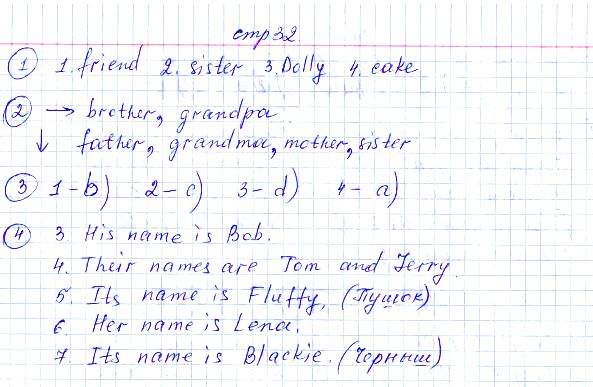 стр 32.
① 1. friend 2. sister 3. Dolly 4. cake
② → brother, grandpa
↓ father, grandma, mother, sister
③ 1-b) 2-c) 3-d) 4-a)
④ 3. His name is Bob.
4. Their names are Tom and Jerry.
5. Its name is Fluffy. (Пушок)
6. Her name is Lena.
7. Its name is Blackie. (Черныш)